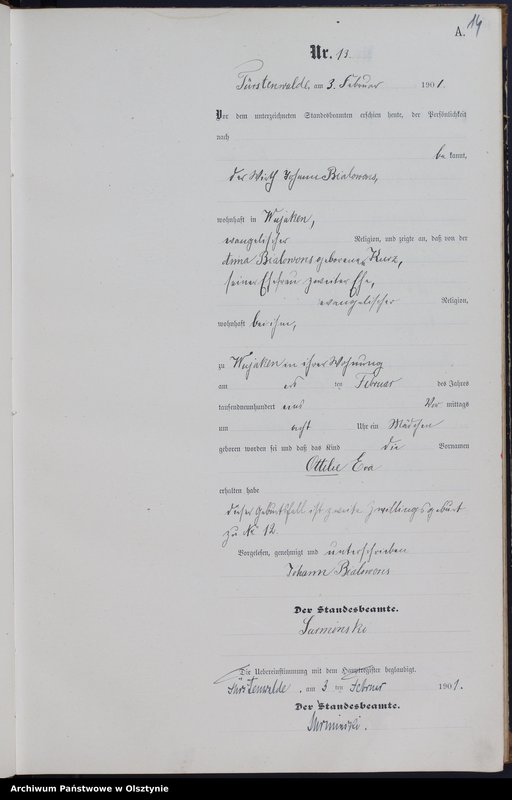 A. 14
Nr. 13.
Fürstenwalde, am 3. Februar 1901.
Vor dem unterzeichneten Standesbeamten erschien heute, der Persönlichkeit
nach
be kannt,
der Wirth Johann Bialowons,
wohnhaft in Wujaken,
evangelischer Religion, und zeigte an, daß von der
Anna Bialowons geborenen Kurz,
seiner Ehefrau zweiter Ehe,
evangelischer Religion,
wohnhaft bei ihm,
zu Wujaken in ihrer Wohnung
am ten Februar des Jahres
tausendneunhundert eins Vor mittags
um acht Uhr ein Mädchen
geboren worden sei und daß das Kind die Vornamen
Ottilie Eva
erhalten habe
dieser Geburtsfall ist zweite Zwillingsgeburt
zu No 12.
Vorgelesen, genehmigt und unterschrieben
Johann Bialowons
Der Standesbeamte.
Surminski
Die Uebereinstimmung mit dem Hauptregister beglaubigt.
Fürstenwalde, am 3 ten Februar 1901.
Der Standesbeamte.
Surminski.
Archiwum Państwowe w Olsztynie